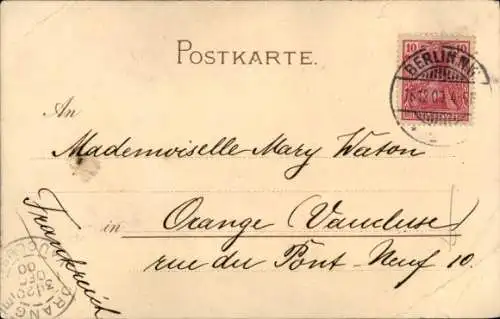 POSTKARTE.
10 10
BERLIN N.W.
An
Mademoiselle Mary Waton
in Orange (Vaucluse)
rue du Pont-Neuf 10.
Frankreich